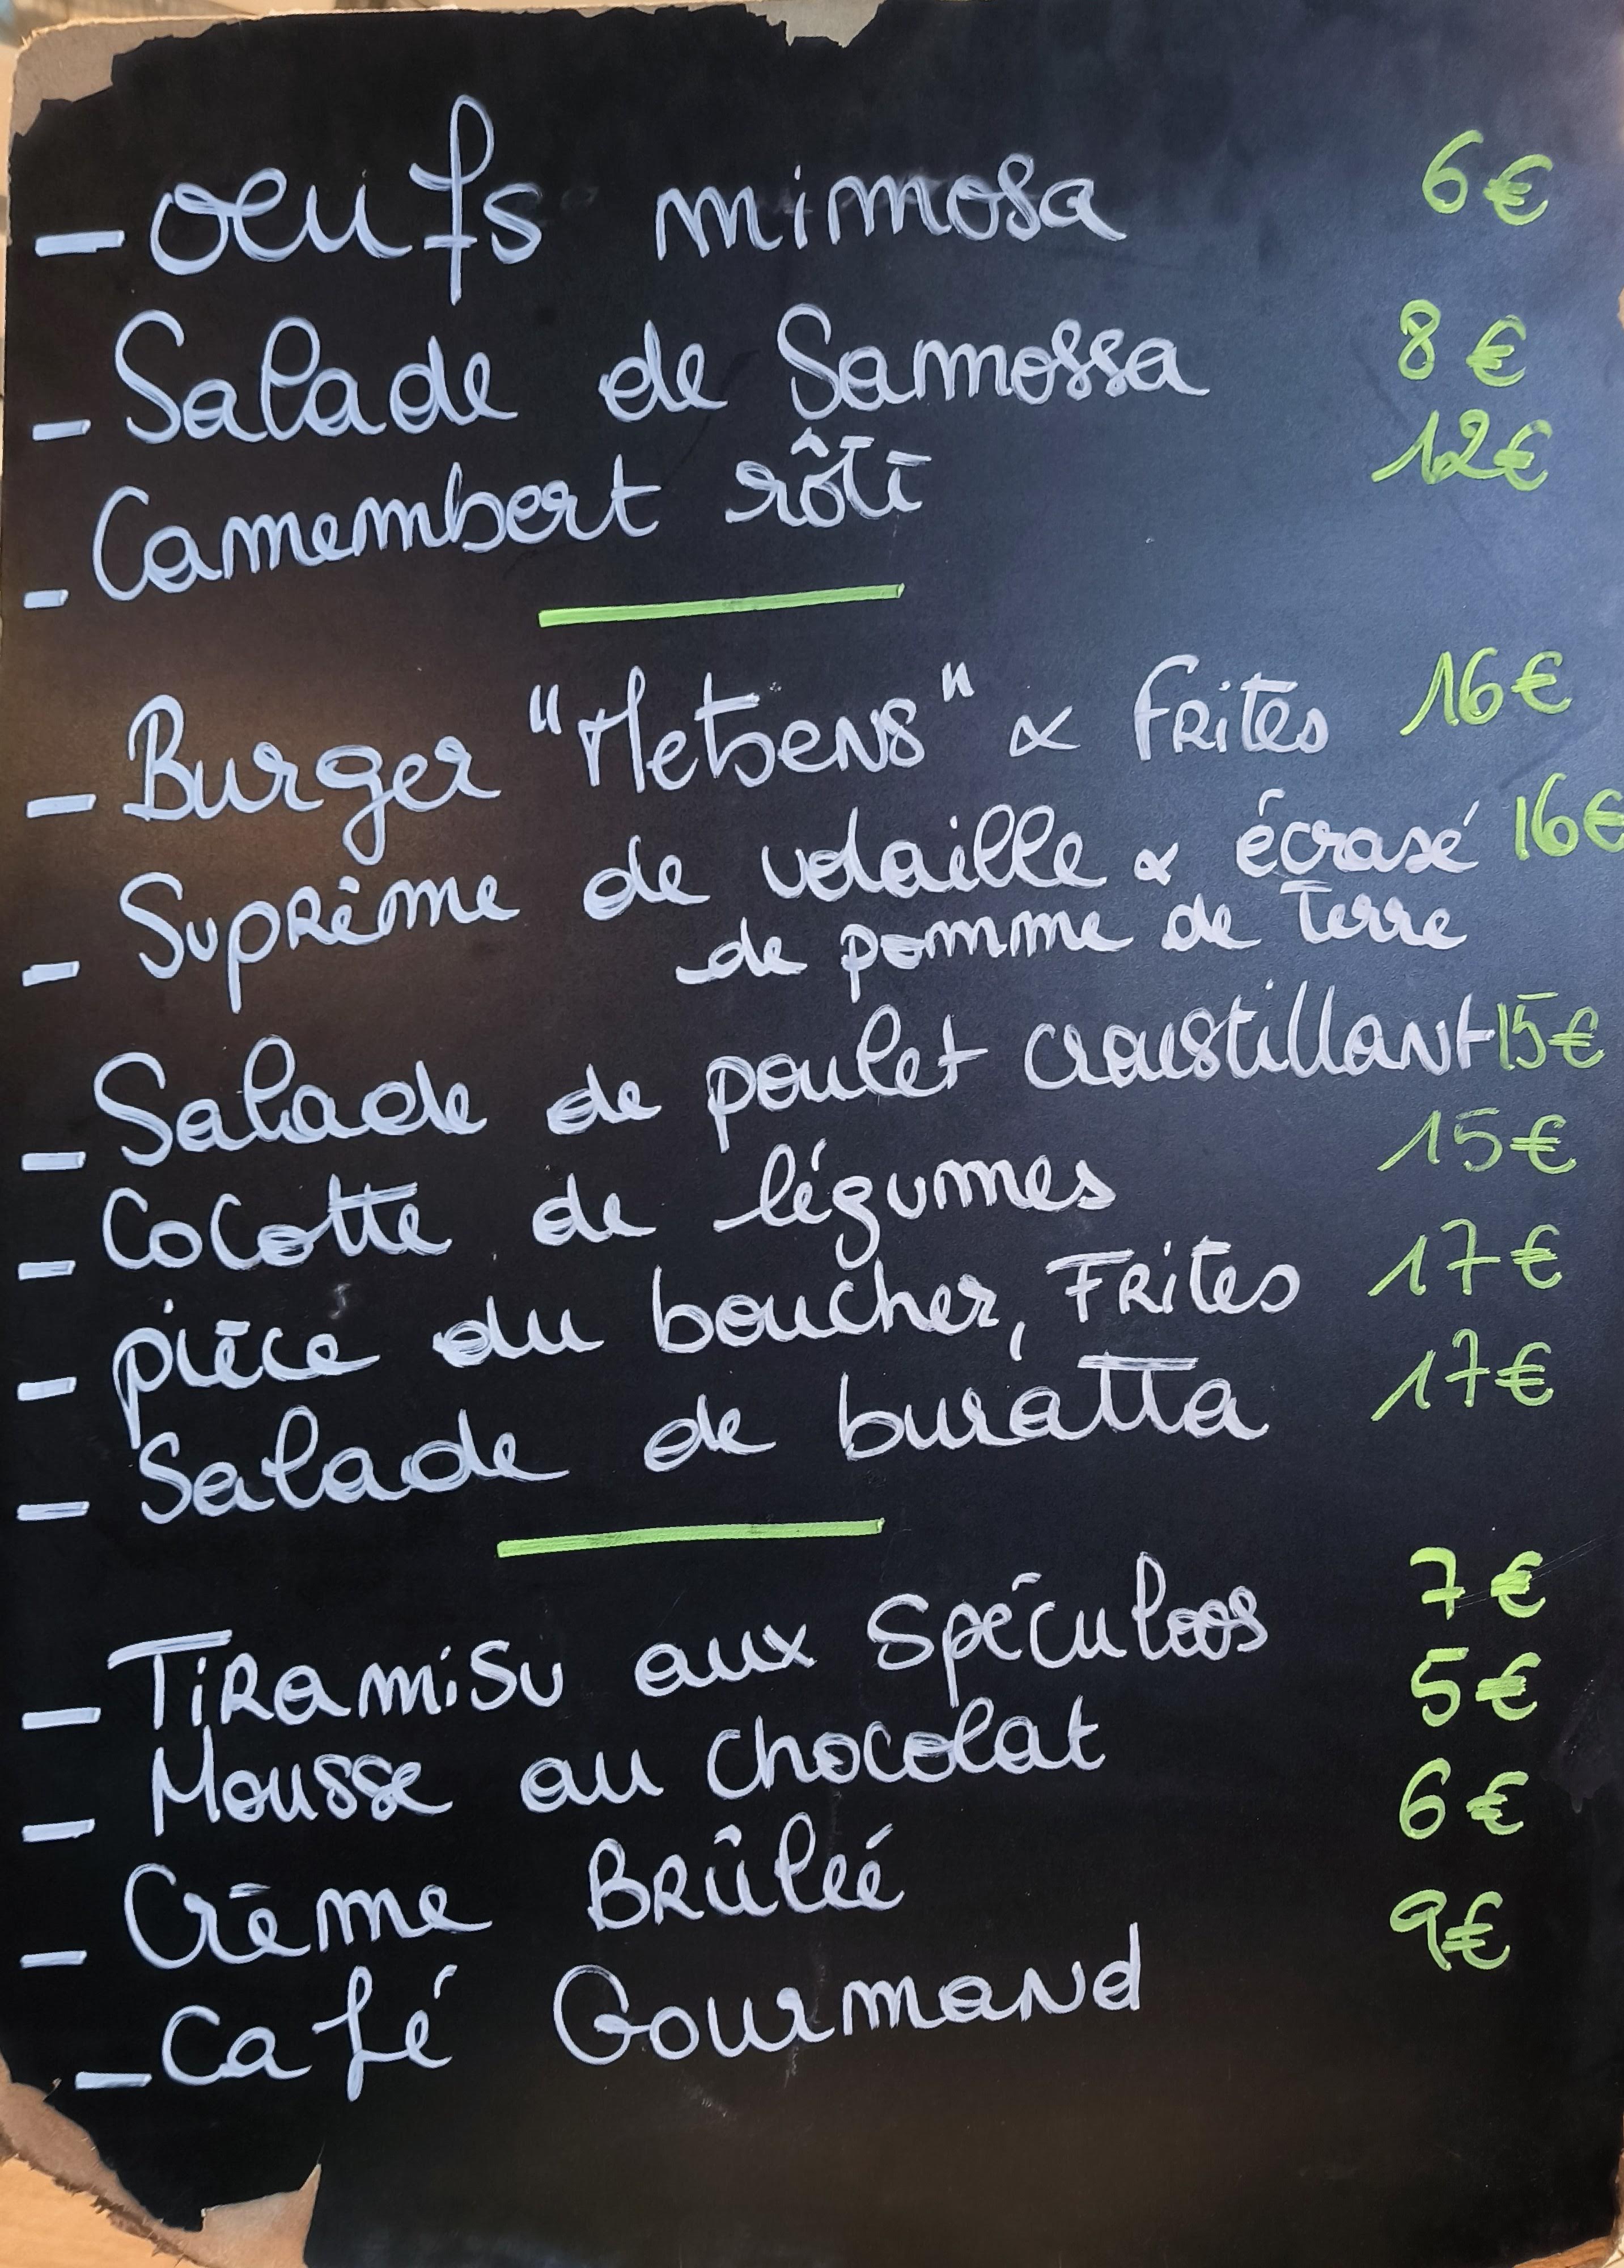 - oeufs mimosa 6€
- Salade de Samossa 8€
- Camembert rôti 12€
- Burger "Metsens" & frites 16€
- Suprême de volaille & écrasé 16€
de pomme de terre
- Salade de poulet croustillant 15€
- Cocotte de légumes 15€
- pièce du boucher, Frites 17€
- Salade de buratta 17€
- Tiramisu aux Spéculoos 7€
- Mousse au chocolat 5€
- Crème Brûlée 6€
- Café Gourmand 9€